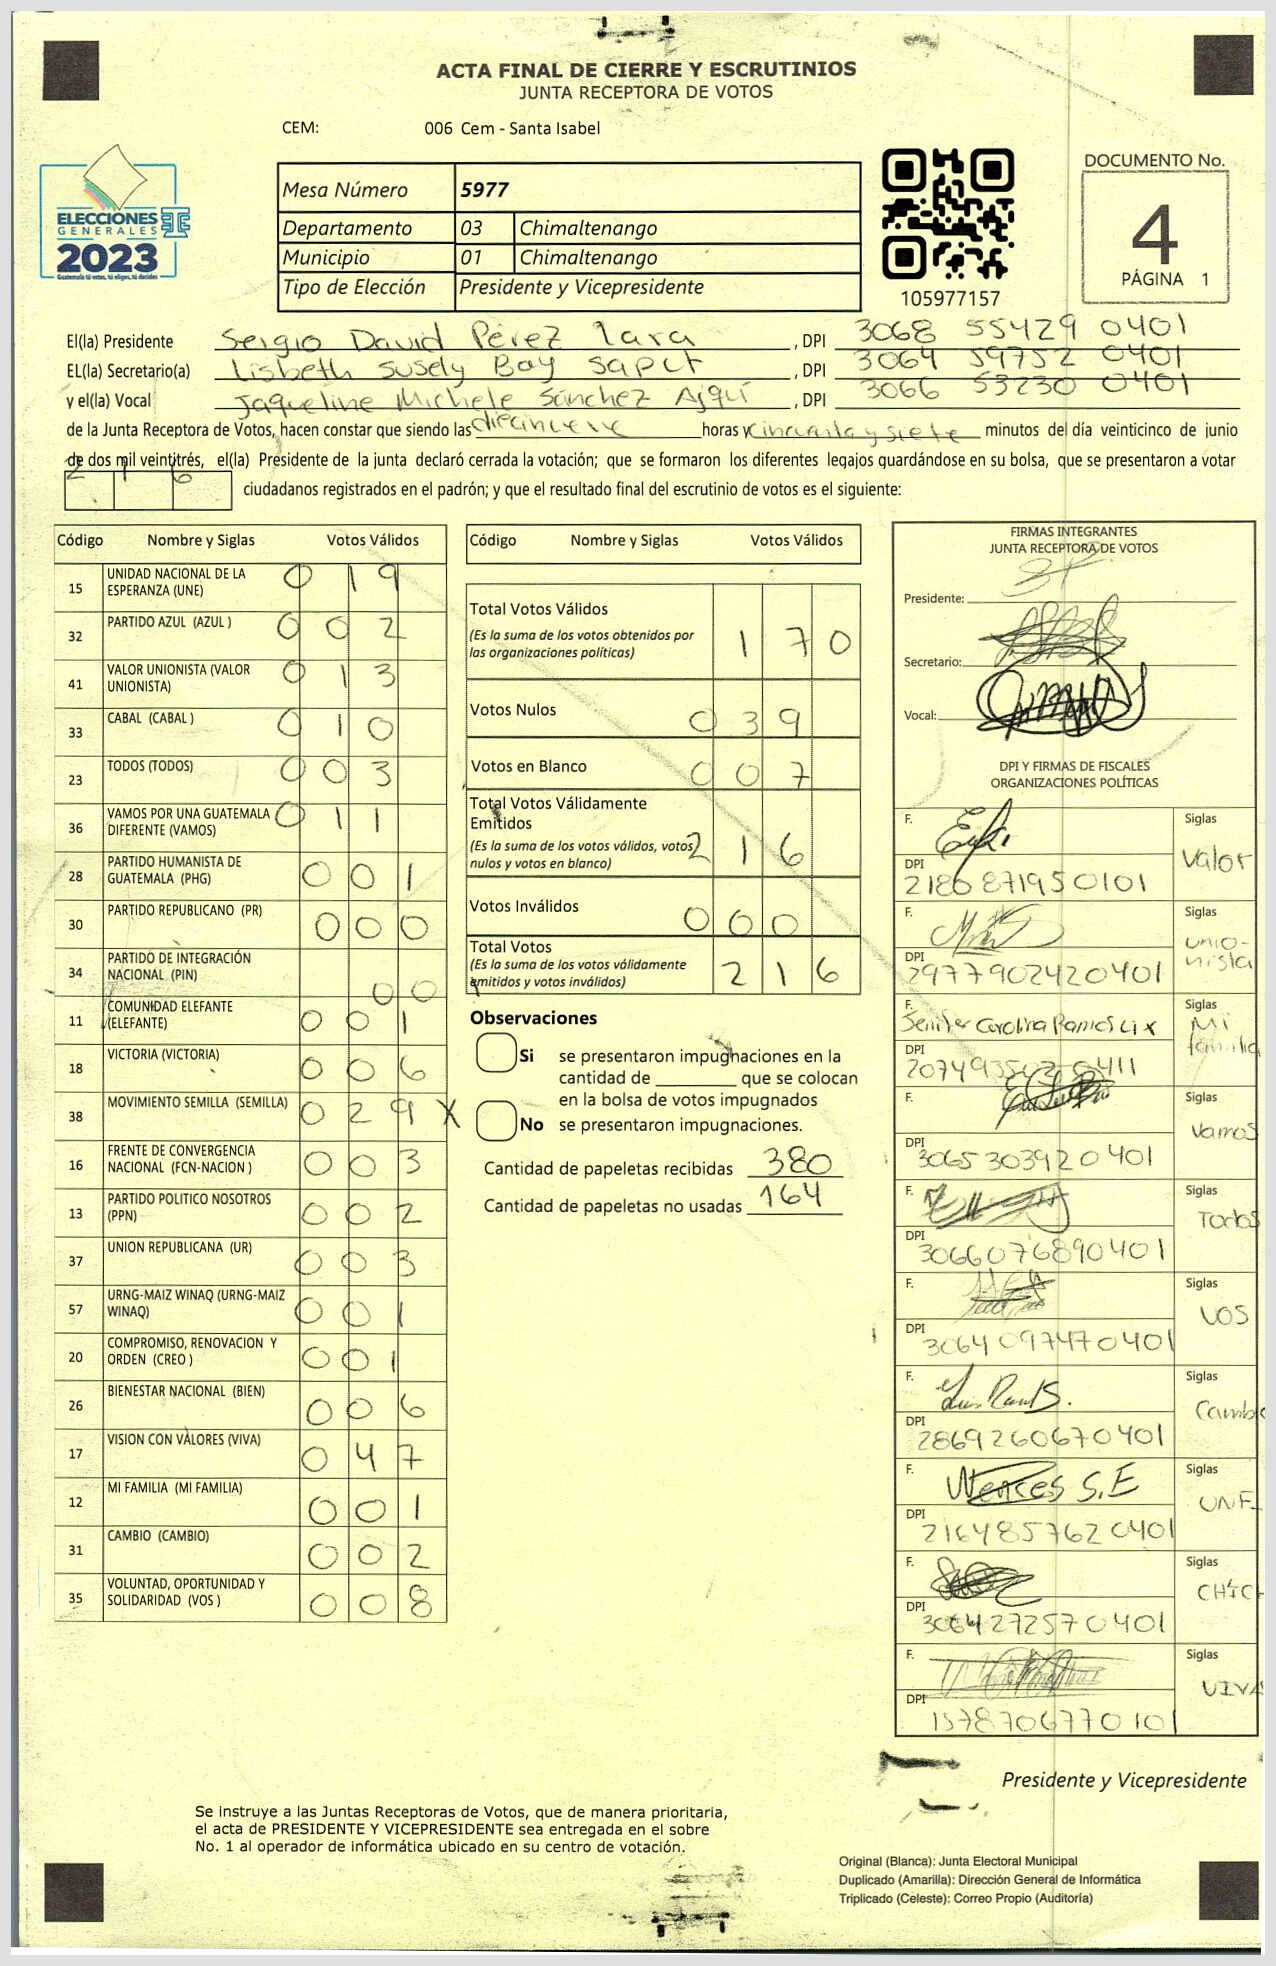 ACTA FINAL DE CIERRE Y ESCRUTINIOS
JUNTA RECEPTORA DE VOTOS
CEM: 006 Cem - Santa Isabel
ELECCIONES
GENERALES
2023
Guatemala tú votas, tú eliges, tú decides
Mesa Número 5977
Departamento 03 Chimaltenango
Municipio 01 Chimaltenango
Tipo de Elección Presidente y Vicepresidente
105977157
DOCUMENTO No.
4
PÁGINA 1
El(la) Presidente Sergio David Pérez Lara, DPI 3068 55429 0401
EL(la) Secretario(a) Lisbeth Susely Bay Saput, DPI 3064 59752 0401
y el(la) Vocal Jaqueline Michele Sánchez Ajquí, DPI 3066 53230 0401
de la Junta Receptora de Votos, hacen constar que siendo las diecinueve horas y cincuenta y siete minutos del día veinticinco de junio
de dos mil veintitrés, el(la) Presidente de la junta declaró cerrada la votación; que se formaron los diferentes legajos guardándose en su bolsa, que se presentaron a votar
216 ciudadanos registrados en el padrón; y que el resultado final del escrutinio de votos es el siguiente:
Código Nombre y Siglas Votos Válidos
15 UNIDAD NACIONAL DE LA ESPERANZA (UNE) 019
32 PARTIDO AZUL (AZUL ) 002
41 VALOR UNIONISTA (VALOR UNIONISTA) 013
33 CABAL (CABAL ) 010
23 TODOS (TODOS) 003
36 VAMOS POR UNA GUATEMALA DIFERENTE (VAMOS) 011
28 PARTIDO HUMANISTA DE GUATEMALA (PHG) 001
30 PARTIDO REPUBLICANO (PR) 000
34 PARTIDO DE INTEGRACIÓN NACIONAL (PIN) 00
11 COMUNIDAD ELEFANTE (ELEFANTE) 001
18 VICTORIA (VICTORIA) 006
38 MOVIMIENTO SEMILLA (SEMILLA) 029 X
16 FRENTE DE CONVERGENCIA NACIONAL (FCN-NACION ) 003
13 PARTIDO POLITICO NOSOTROS (PPN) 002
37 UNION REPUBLICANA (UR) 003
57 URNG-MAIZ WINAQ (URNG-MAIZ WINAQ) 001
20 COMPROMISO, RENOVACION Y ORDEN (CREO ) 001
26 BIENESTAR NACIONAL (BIEN) 006
17 VISION CON VALORES (VIVA) 047
12 MI FAMILIA (MI FAMILIA) 001
31 CAMBIO (CAMBIO) 002
35 VOLUNTAD, OPORTUNIDAD Y SOLIDARIDAD (VOS ) 008
Código Nombre y Siglas Votos Válidos
Total Votos Válidos 170
(Es la suma de los votos obtenidos por
las organizaciones políticas)
Votos Nulos 039
Votos en Blanco 007
Total Votos Válidamente
Emitidos
(Es la suma de los votos válidos, votos
nulos y votos en blanco) 216
Votos Inválidos 000
Total Votos
(Es la suma de los votos válidamente
emitidos y votos inválidos) 216
Observaciones
Si se presentaron impugnaciones en la
cantidad de ________ que se colocan
en la bolsa de votos impugnados
No se presentaron impugnaciones.
Cantidad de papeletas recibidas 380
Cantidad de papeletas no usadas 164
FIRMAS INTEGRANTES
JUNTA RECEPTORA DE VOTOS
Presidente:
Secretario:
Vocal:
DPI Y FIRMAS DE FISCALES
ORGANIZACIONES POLÍTICAS
F. Siglas Valor
DPI 2180871950101
F. Siglas Unionista
DPI 2977902420401
F. Jenifer Carolina Ramos Lix Siglas Mi familia
DPI
F. Siglas Vamos
DPI 3065303920401
F. Siglas Todos
DPI 3066076890401
F. Siglas VOS
DPI 3064097470401
F. Siglas Cambio
DPI 2869260670401
F. Wences S.E Siglas UNE
DPI 2164857620401
F. Siglas
DPI 3064272570401
F. Siglas VIVA
DPI 1578706770101
Presidente y Vicepresidente
Se instruye a las Juntas Receptoras de Votos, que de manera prioritaria,
el acta de PRESIDENTE Y VICEPRESIDENTE sea entregada en el sobre
No. 1 al operador de informática ubicado en su centro de votación.
Original (Blanca): Junta Electoral Municipal
Duplicado (Amarilla): Dirección General de Informática
Triplicado (Celeste): Correo Propio (Auditoría)